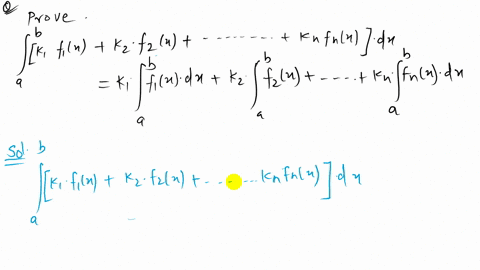 Q Prove.
∫_a^b [k₁ f₁(x) + k₂·f₂(x) + ---------- + kn fn(x)]·dx
= k₁·∫_a^b f₁(x)·dx + k₂·∫_a^b f₂(x) + ----- + kn·∫_a^b fn(x)·dx
Sol.
∫_a^b [k₁·f₁(x) + k₂·f₂(x) + ------- kn fn(x)]·dx
=